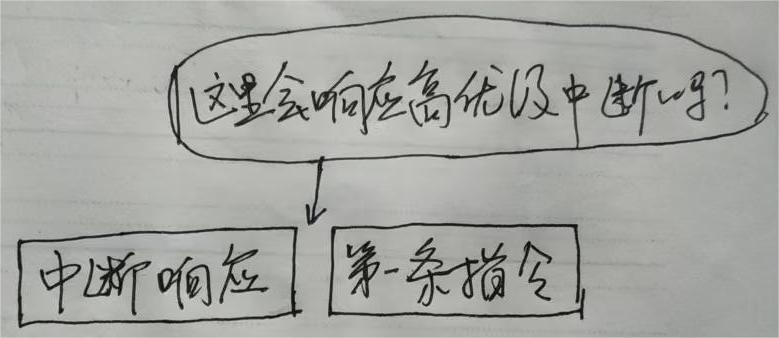 这里会响应高优级中断吗?
中断响应
第一条指令